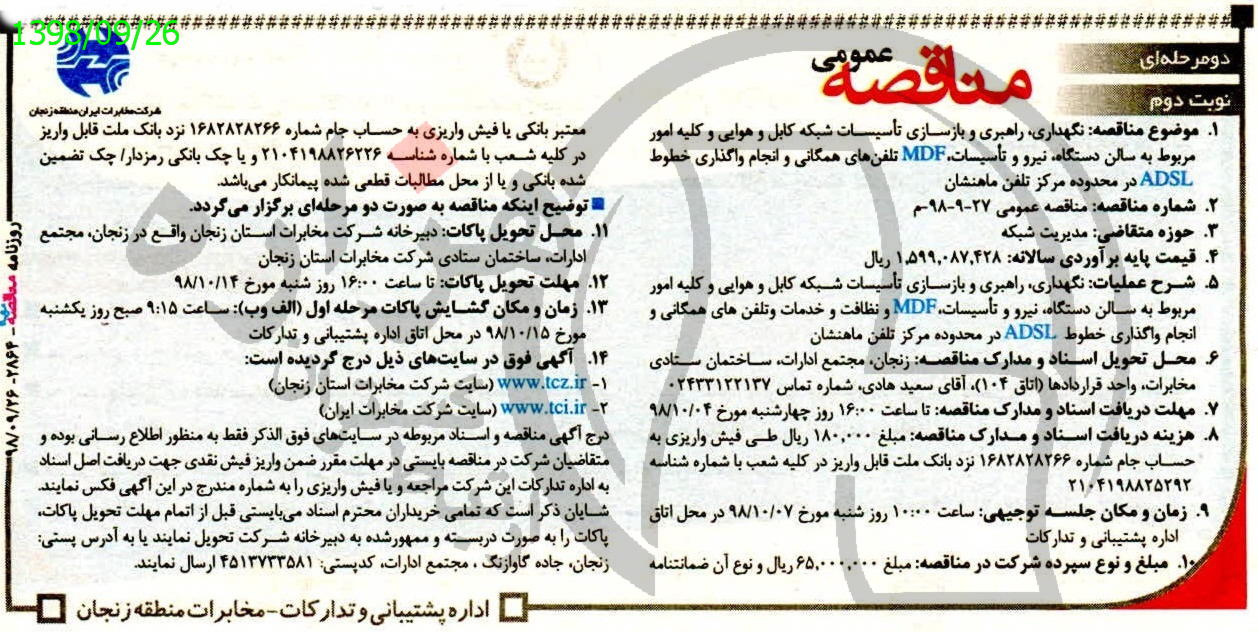 1398/09/26
دومرحله‌ای
نوبت دوم
مناقصه عمومی
شرکت مخابرات ایران منطقه زنجان
۱. موضوع مناقصه: نگهداری، راهبری و بازسازی تأسیسات شبکه کابل و هوایی و کلیه امور
مربوط به سالن دستگاه، نیرو و تأسیسات، MDF تلفن‌های همگانی و انجام واگذاری خطوط
ADSL در محدوده مرکز تلفن ماهنشان
۲. شماره مناقصه: مناقصه عمومی ۲۷-۹-۹۸-م
۳. حوزه متقاضی: مدیریت شبکه
۴. قیمت پایه برآوردی سالانه: ۱,۵۹۹,۰۸۷,۴۲۸ ریال
۵. شرح عملیات: نگهداری، راهبری و بازسازی تأسیسات شبکه کابل و هوایی و کلیه امور
مربوط به سالن دستگاه، نیرو و تأسیسات، MDF و نظافت و خدمات وتلفن های همگانی و
انجام واگذاری خطوط ADSL در محدوده مرکز تلفن ماهنشان
۶. محل تحویل اسناد و مدارک مناقصه: زنجان، مجتمع ادارات، ساختمان ستادی
مخابرات، واحد قراردادها (اتاق ۱۰۴)، آقای سعید هادی، شماره تماس ۰۲۴۳۳۱۲۲۱۳۷
۷. مهلت دریافت اسناد و مدارک مناقصه: تا ساعت ۱۶:۰۰ روز چهارشنبه مورخ ۹۸/۱۰/۰۴
۸. هزینه دریافت اسناد و مدارک مناقصه: مبلغ ۱۸۰,۰۰۰ ریال طی فیش واریزی به
حساب جام شماره ۱۶۸۲۸۲۸۲۶۶ نزد بانک ملت قابل واریز در کلیه شعب با شماره شناسه
۲۱۰۴۱۹۸۸۲۵۲۹۲
۹. زمان و مکان جلسه توجیهی: ساعت ۱۰:۰۰ روز شنبه مورخ ۹۸/۱۰/۰۷ در محل اتاق
اداره پشتیبانی و تدارکات
۱۰. مبلغ و نوع سپرده شرکت در مناقصه: مبلغ ۶۵,۰۰۰,۰۰۰ ریال و نوع آن ضمانتنامه
معتبر بانکی یا فیش واریزی به حساب جام شماره ۱۶۸۲۸۲۸۲۶۶ نزد بانک ملت قابل واریز
در کلیه شعب با شماره شناسه ۲۱۰۴۱۹۸۸۲۶۲۲۶ و یا چک بانکی رمزدار/ چک تضمین
شده بانکی و یا از محل مطالبات قطعی شده پیمانکار می‌باشد.
توضیح اینکه مناقصه به صورت دو مرحله‌ای برگزار می‌گردد.
۱۱. محل تحویل پاکات: دبیرخانه شرکت مخابرات استان زنجان واقع در زنجان، مجتمع
ادارات، ساختمان ستادی شرکت مخابرات استان زنجان
۱۲. مهلت تحویل پاکات: تا ساعت ۱۶:۰۰ روز شنبه مورخ ۹۸/۱۰/۱۴
۱۳. زمان و مکان گشایش پاکات مرحله اول (الف وب): ساعت ۹:۱۵ صبح روز یکشنبه
مورخ ۹۸/۱۰/۱۵ در محل اتاق اداره پشتیبانی و تدارکات
۱۴. آگهی فوق در سایت‌های ذیل درج گردیده است:
۱- www.tcz.ir (سایت شرکت مخابرات استان زنجان)
۲- www.tci.ir (سایت شرکت مخابرات ایران)
درج آگهی مناقصه و اسناد مربوطه در سایت‌های فوق الذکر فقط به منظور اطلاع رسانی بوده و
متقاضیان شرکت در مناقصه بایستی در مهلت مقرر ضمن واریز فیش نقدی جهت دریافت اصل اسناد
به اداره تدارکات این شرکت مراجعه و یا فیش واریزی را به شماره مندرج در این آگهی فکس نمایند.
شایان ذکر است که تمامی خریداران محترم اسناد می‌بایستی قبل از اتمام مهلت تحویل پاکات،
پاکات را به صورت دربسته و ممهورشده به دبیرخانه شرکت تحویل نمایند یا به آدرس پستی:
زنجان، جاده گاوازنگ ، مجتمع ادارات، کدپستی: ۴۵۱۳۷۳۳۵۸۱ ارسال نمایند.
اداره پشتیبانی و تدارکات-مخابرات منطقه زنجان
روزنامه مناقصه - ۲۸۶۴- ۹۸/۰۹/۲۶
هزاره